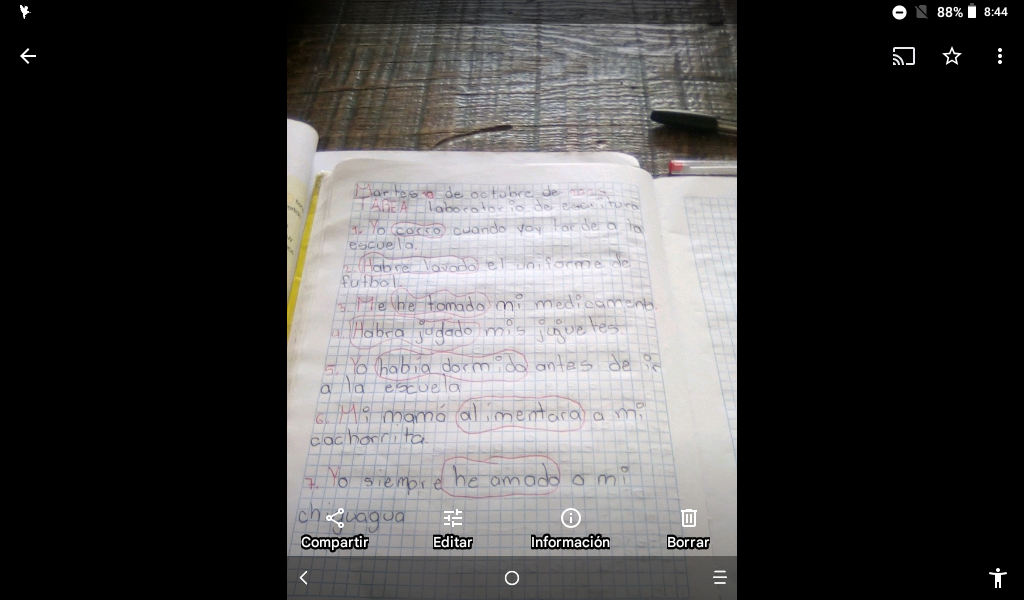 88% 8:44
Martes de octubre de
TAREA laboratorio de escritura
1. Yo corro cuando voy tarde a la
escuela.
2. Habre lavado el uniforme de
futbol.
3. Me he tomado mi medicamento.
4. Habra jugado mis juguetes
5. Yo había dormido antes de ir
a la escuela
6. Mi mamá alimentara a mi
cachorrita
7. Yo siempre he amado a mi
chiguagua
Compartir Editar Información Borrar